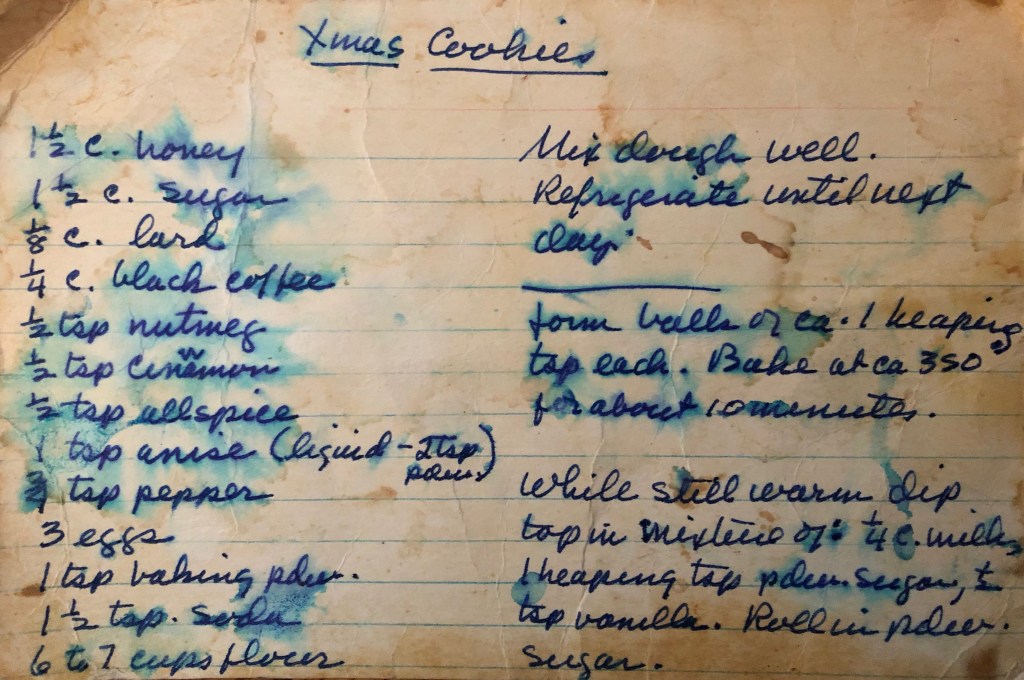 Xmas Cookies
1 1/2 c. honey
1 1/2 c. sugar
1/8 c. lard
1/4 c. black coffee
1/2 tsp nutmeg
1/2 tsp cinnamon
1/2 tsp allspice
1 tsp anise (liquid - 2 tsp
pdwr)
3/4 tsp pepper
3 eggs
1 tsp baking pdwr.
1 1/2 tsp. soda
6 to 7 cups flour
Mix dough well.
Refrigerate until next
day.
form balls of ca. 1 heaping
tsp each. Bake at ca 350
for about 10 minutes.
While still warm dip
top in mixture of: 1/4 c. milk,
1 heaping tsp pdwr. sugar, 1/2
tsp vanilla. Roll in pdwr.
sugar.